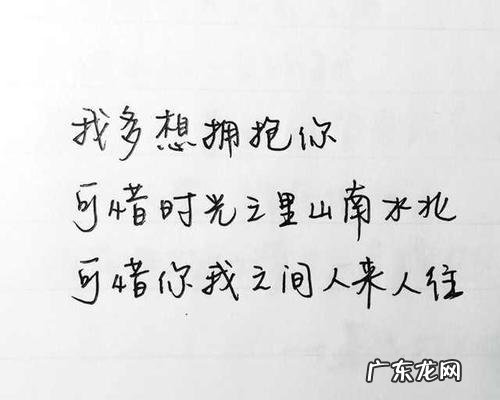 我多想拥抱你
可惜时光之里山南水北
可惜你我之间人来人往
广东龙网